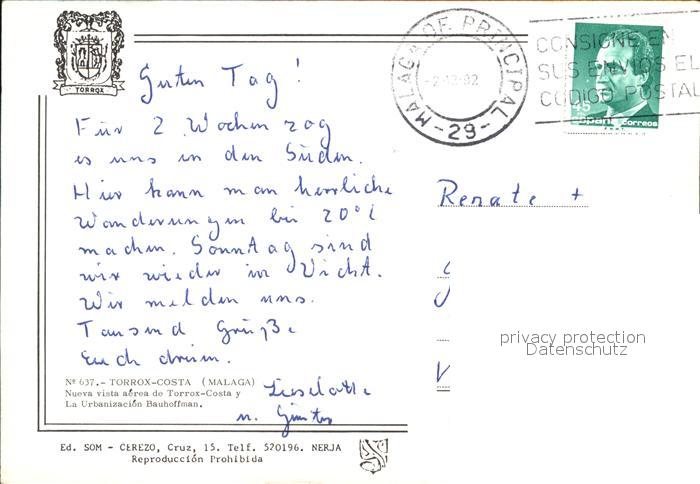 TORROX
Guten Tag!
Für 2 Wochen zog
es uns in den Süden.
Hier kann man herrliche
Wanderungen bei 20°C
machen. Sonntag sind
wir wieder in Vicht.
Wir melden uns.
Tausend Grüße
Euch dreien.
Lieselotte
u. Günter
Nº 637.- TORROX-COSTA (MALAGA)
Nueva vista aérea de Torrox-Costa y
La Urbanización Bauhoffman.
Ed. SOM - CEREZO, Cruz, 15. Telf. 520196. NERJA
Reproducción Prohibida
MALAGA DE PRINCIPAL
-29-
CONSIGNE EN
SUS ENVIOS EL
CODIGO POSTAL
45
España correos
Renate +
privacy protection
Datenschutz